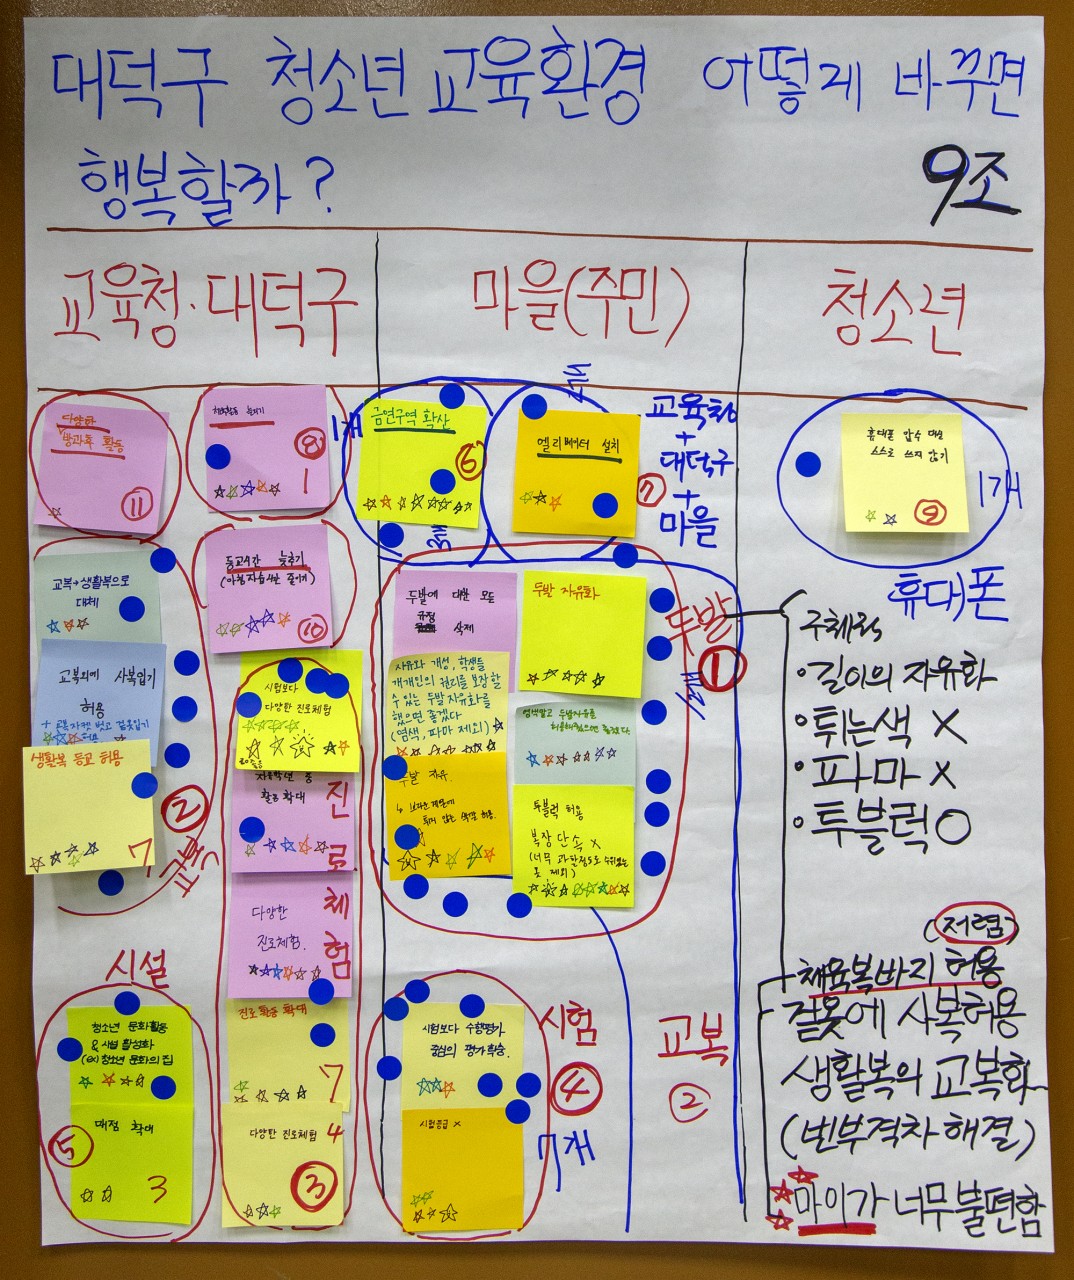 대덕구 청소년 교육환경 어떻게 바꾸면
행복할까?
9조
교육청·대덕구
마을(주민)
청소년
다양한
방과후 활동
11
체험활동 늘리기
8
1
1개
금연구역 확산
6
3개
엘리베이터 설치
7
2개
교육청
+
대덕구
+
마을
휴대폰 압수 대신
스스로 쓰지 않기
9
1개
휴대폰
교복→생활복으로
대체
교복외에 사복입기
허용
생활복 등교 허용
7
2
교복
등교시간 늦추기
(아침자습시간 줄이기)
10
시험보다
다양한 진로체험
자유학년 중
활동 확대
다양한
진로체험.
진로 활동 확대
7
다양한 진로체험
4
3
진로체험
두발에 대한 모든
규정
삭제
두발 자유화
자유와 개성, 학생들
개개인의 권리를 보장할
수 있는 두발 자유화를
했으면 좋겠다
(염색, 파마 제외)
염색말고 두발자유를
두발 자유.
투블럭 허용
복장 단속 X
(너무 과한정도로 수위있는
옷 제외)
두발
1
구체적
·길이의 자유화
·튀는색 X
·파마 X
·투블럭 O
시설
청소년 문화활동
& 시설 활성화
(ex) 청소년 문화의 집
매점 확대
5
3
시험보다 수행평가
중심의 평가학습.
시험등급 X
시험
4
7개
교복
2
(저렴)
체육복바지 허용
겉옷에 사복허용
생활복의 교복화
(빈부격차해결)
마이가 너무불편함